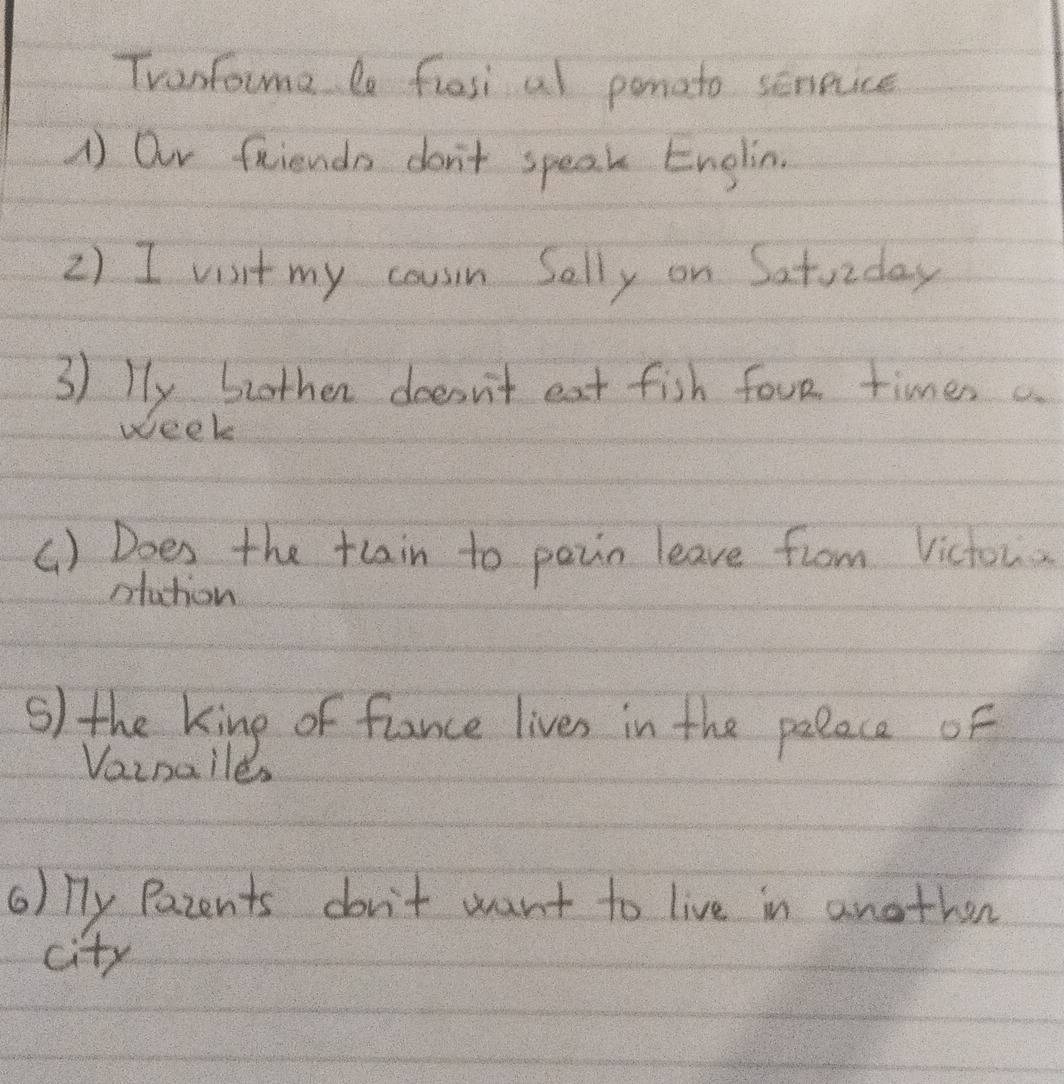 Tranforma le frasi al passato semplice
1) Our friends don't speak Englis.
2) I visit my cousin Sally on Saturday
3) My brother doesn't eat fish four times a
week
4) Does the train to paris leave from Victoria
station
5) the King of france lives in the palace of
Varsailles
6) My Parents don't want to live in another
city